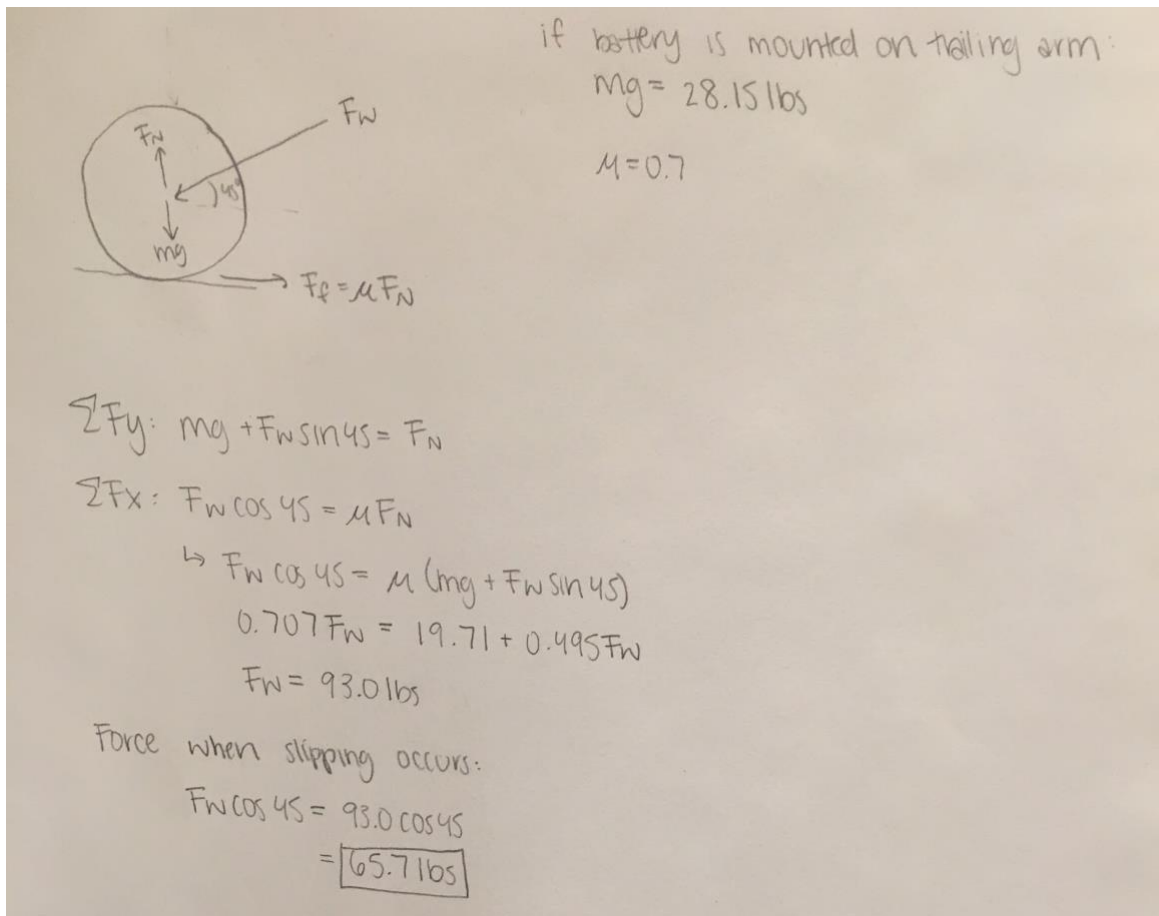 if battery is mounted on trailing arm:
mg = 28.15 lbs
μ = 0.7
Fw
FN
45°
mg
Ff = μFN
ΣFy: mg + Fw sin 45 = FN
ΣFx: Fw cos 45 = μFN
↳ Fw cos 45 = μ (mg + Fw sin 45)
0.707 Fw = 19.71 + 0.495 Fw
Fw = 93.0 lbs
Force when slipping occurs:
Fw cos 45 = 93.0 cos 45
= 65.7 lbs